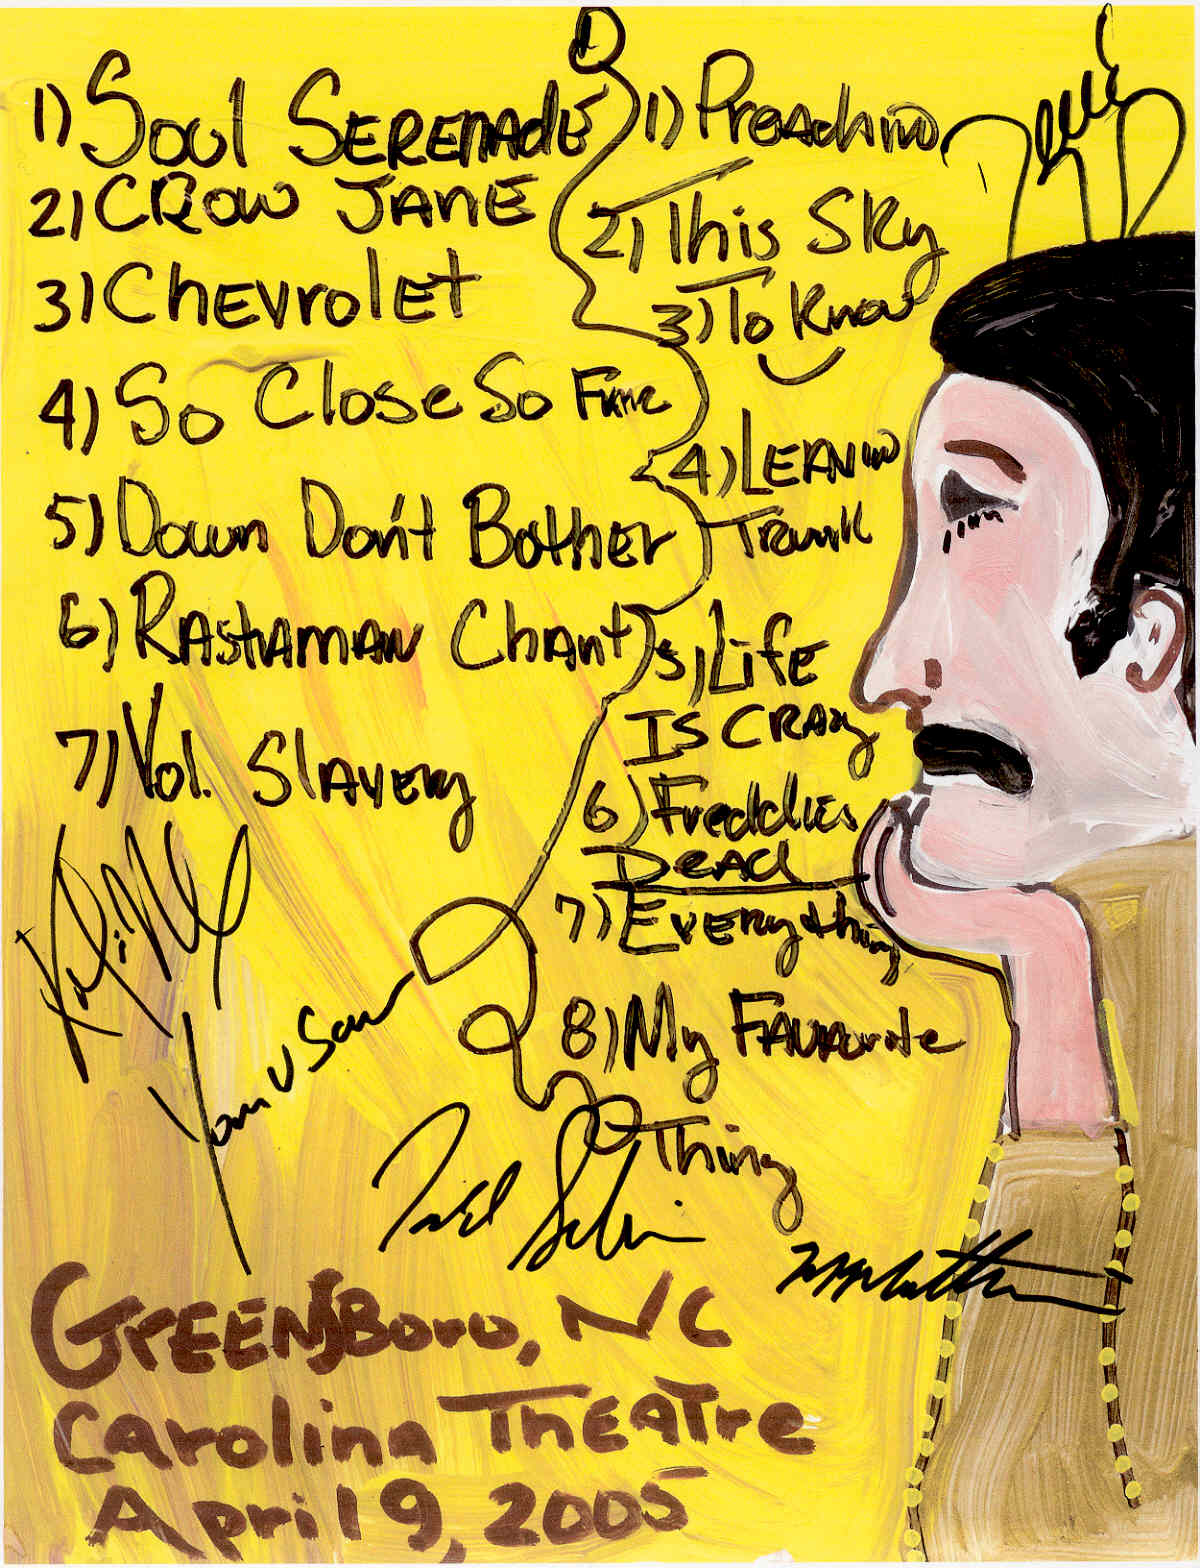 1) Soul SERENADE
2) CROW JANE
3) Chevrolet
4) So Close So Fine
5) Down Don't Bother
6) RAStAMAN Chant
7) Vol. SlAVERy
1) Preachin
2) This Sky
3) To Know
4) LEANIN
Trunk
5) LifE
IS CRAzy
6) Freddies
DEAd
7) EVERything
8) My FAVAorite
Thing
Derek
Kofi
Yonrico Scott
Todd Smallie
M Mattison
GREENSBoro, NC
Carolina THEATre
April 9, 2005